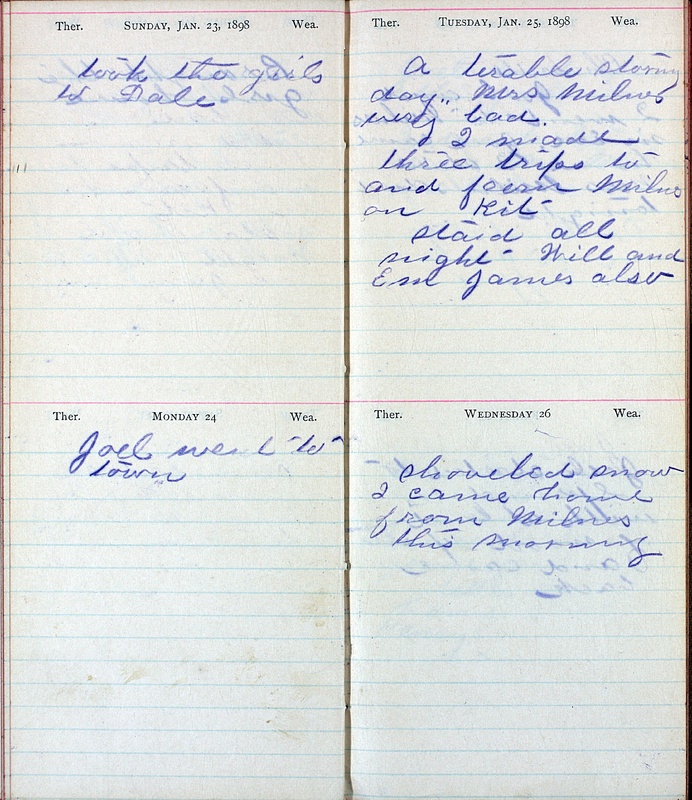 Ther. SUNDAY, JAN. 23, 1898 Wea.
took the girls
to Dale
Ther. MONDAY 24 Wea.
Joel went to
town
Ther. TUESDAY, JAN. 25, 1898 Wea.
A terable stormy
day,, Mrs Milnes
very bad.
I made
three trips to
and from Milnes
on Kit
staid all
night - Will and
Em James also
Ther. WEDNESDAY 26 Wea.
shoveled snow
I came home
from Milnes
this morning